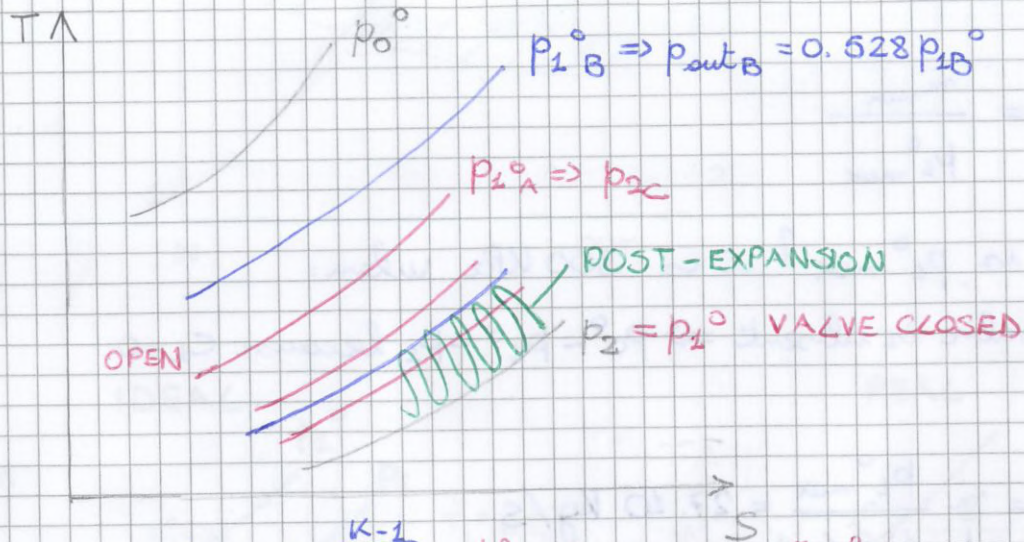 T
p₀°
p₁°B => p_outB = 0.528 p₁B°
p₁°A => p₂c
POST-EXPANSION
p₂ = p₁° VALVE CLOSED
OPEN
S
K-1